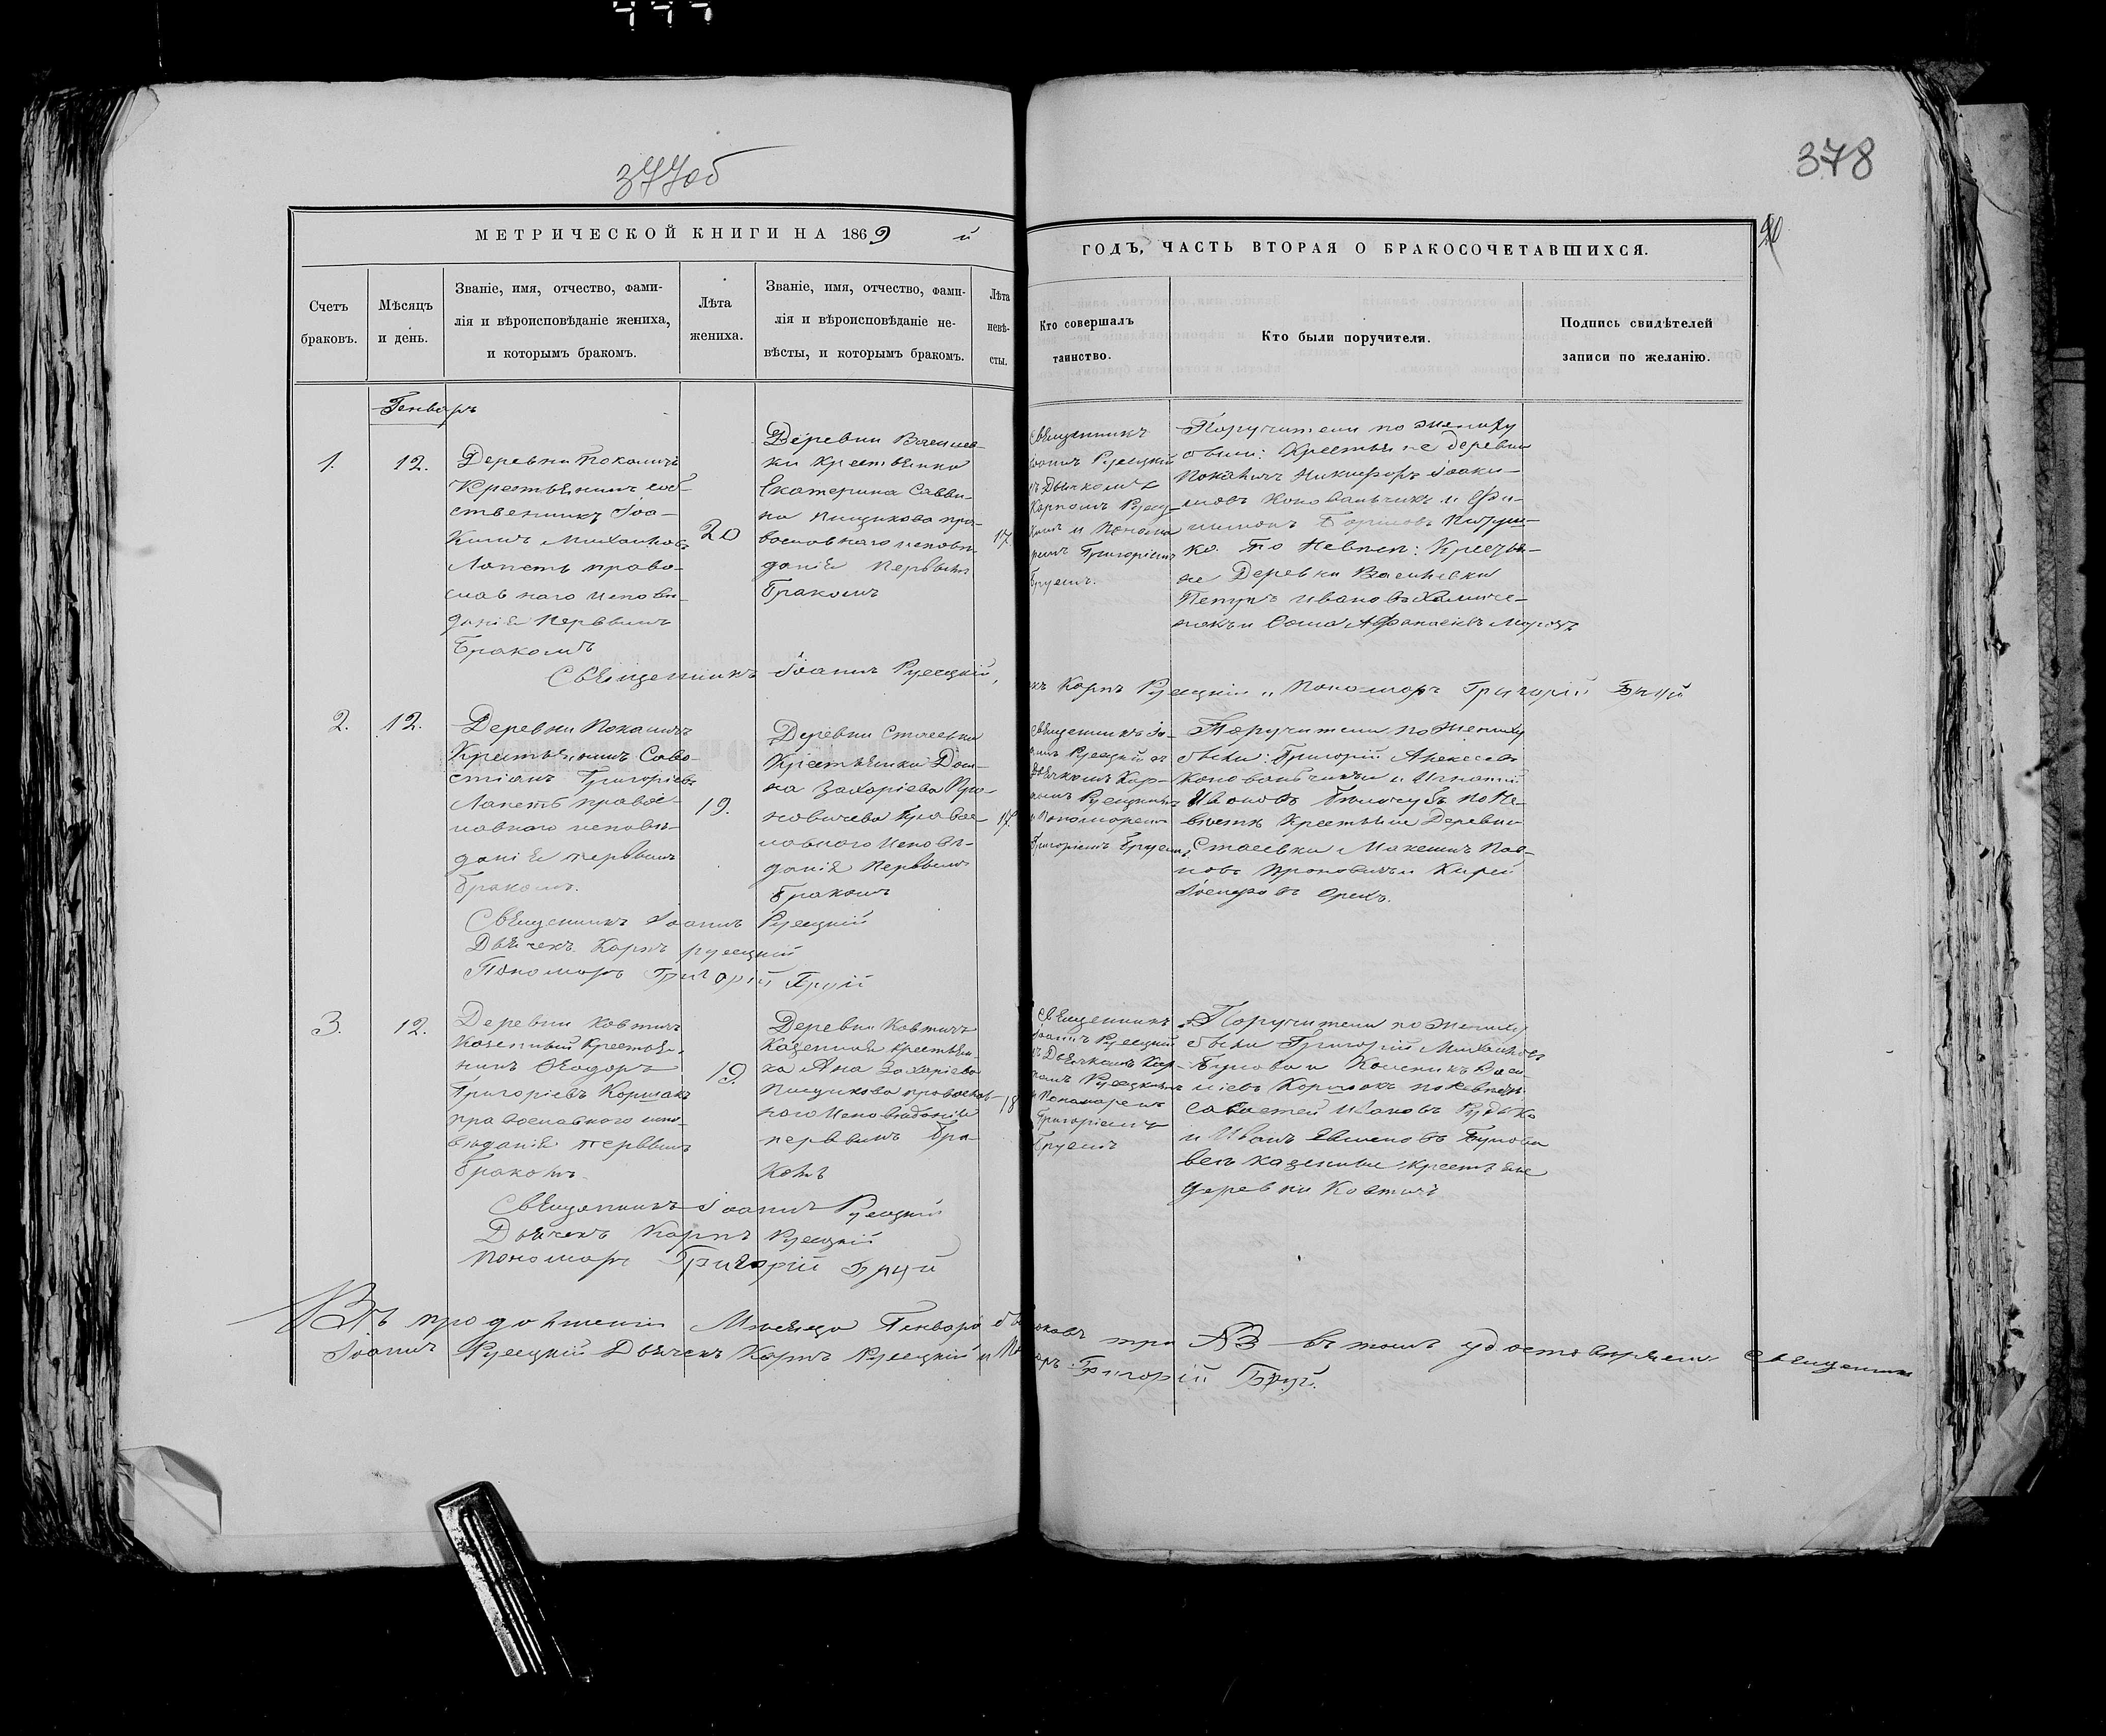 377об
378
МЕТРИЧЕСКОЙ КНИГИ НА 1869 й
ГОДЪ, ЧАСТЬ ВТОРАЯ О БРАКОСОЧЕТАВШИХСЯ.
Счетъ
браковъ.
Мѣсяцъ
и день.
Званіе, имя, отчество, фами-
лія и вѣроисповѣданіе жениха,
и которымъ бракомъ.
Лѣта
жениха.
Званіе, имя, отчество, фами-
лія и вѣроисповѣданіе не-
вѣсты, и которымъ бракомъ.
Лѣта
невѣ-
сты.
Кто совершалъ
таинство.
Кто были поручители.
Подпись свидѣтелей
записи по желанію.
Генварь
1.
12.
Деревни
Крестьянинъ соб-
ственникъ Іоа-
кимъ Михайловъ
Лапеть право-
славнаго исповѣ-
данія первымъ
бракомъ
20
Деревни Василев-
ки крестьянка
Екатерина Савви-
на Пищикова пра-
вославнаго исповѣ-
данія первымъ
бракомъ
17.
Священникъ
Іоаннъ Русецкій
съ Дьячкомъ
Карпомъ Русец-
кимъ и Понома-
ремъ Григоріемъ
Бруемъ.
Поручители по жениху
были: Крестьяне деревни
Никифоръ Іоаки-
мовъ Коновальчикъ и Фи-
ко. По Невѣст: Крестья-
не Деревни Василевки
Петръ Ивановъ
и Сома Афанасіевъ Морозъ
Священникъ Іоаннъ Русецкій,
Карпъ Русецкій и Пономарь Григорій Бруй
2.
12.
Деревни
Крестьянинъ Саво-
стіанъ Григоріевъ
Лапеть правос-
лавнаго исповѣ-
данія первымъ
бракомъ.
19.
Деревни Стасевки
Крестьянка Дом-
на Захаріева Про-
новичева Правос-
лавнаго Исповѣ-
данія Первымъ
бракомъ
17.
Священникъ Іо-
аннъ Русецкій съ
Дьячкомъ Кар-
помъ Русецкимъ
и Пономаремъ
Григоріемъ Бруемъ
Поручители по Жениху
были: Григорій Алексѣевъ
Коновальчикъ и Игнатій
Ивановъ Бѣлозубъ по Не-
вѣстѣ Крестьяне Деревни
Стасевки Максимъ Пав-
ловъ Проновичъ и Кирей
Іосифовъ Орехъ.
Священникъ Іоаннъ Русецкій
Дьячекъ Карпъ Русецкій
Пономарь Григорій Бруй
3.
12.
Деревни Ковтичъ
Казенный Крестья-
нинъ Ѳеодоръ
Григоріевъ Коршакъ
православнаго испо-
вѣданія первымъ
бракомъ.
19.
Деревни Ковтичъ
Казенная крестьян-
ка Анна Захаріева
Пищикова православ-
наго Исповѣданія
первымъ бра-
комъ
18
Священникъ
Іоаннъ Русецкій
съ Дьячкомъ Кар-
помъ Русецкимъ
и Пономаремъ
Григоріемъ
Бруемъ
Поручители по Жениху
были Григорій Михайловъ
Васи-
ліевъ Коршакъ по Невѣстѣ
Савастей Ивановъ Рудько
и Иванъ
казенные крестьяне
деревни Ковтичъ
Священникъ Іоаннъ Русецкій
Дьячекъ Карпъ Русецкій
Пономарь Григорій Бруй
Въ продолженіи Мѣсяца Генваря три №3 въ томъ удостовѣряемъ Священникъ
Іоаннъ Русецкій Дьячекъ Карпъ Русецкій и Григорій Бруй.